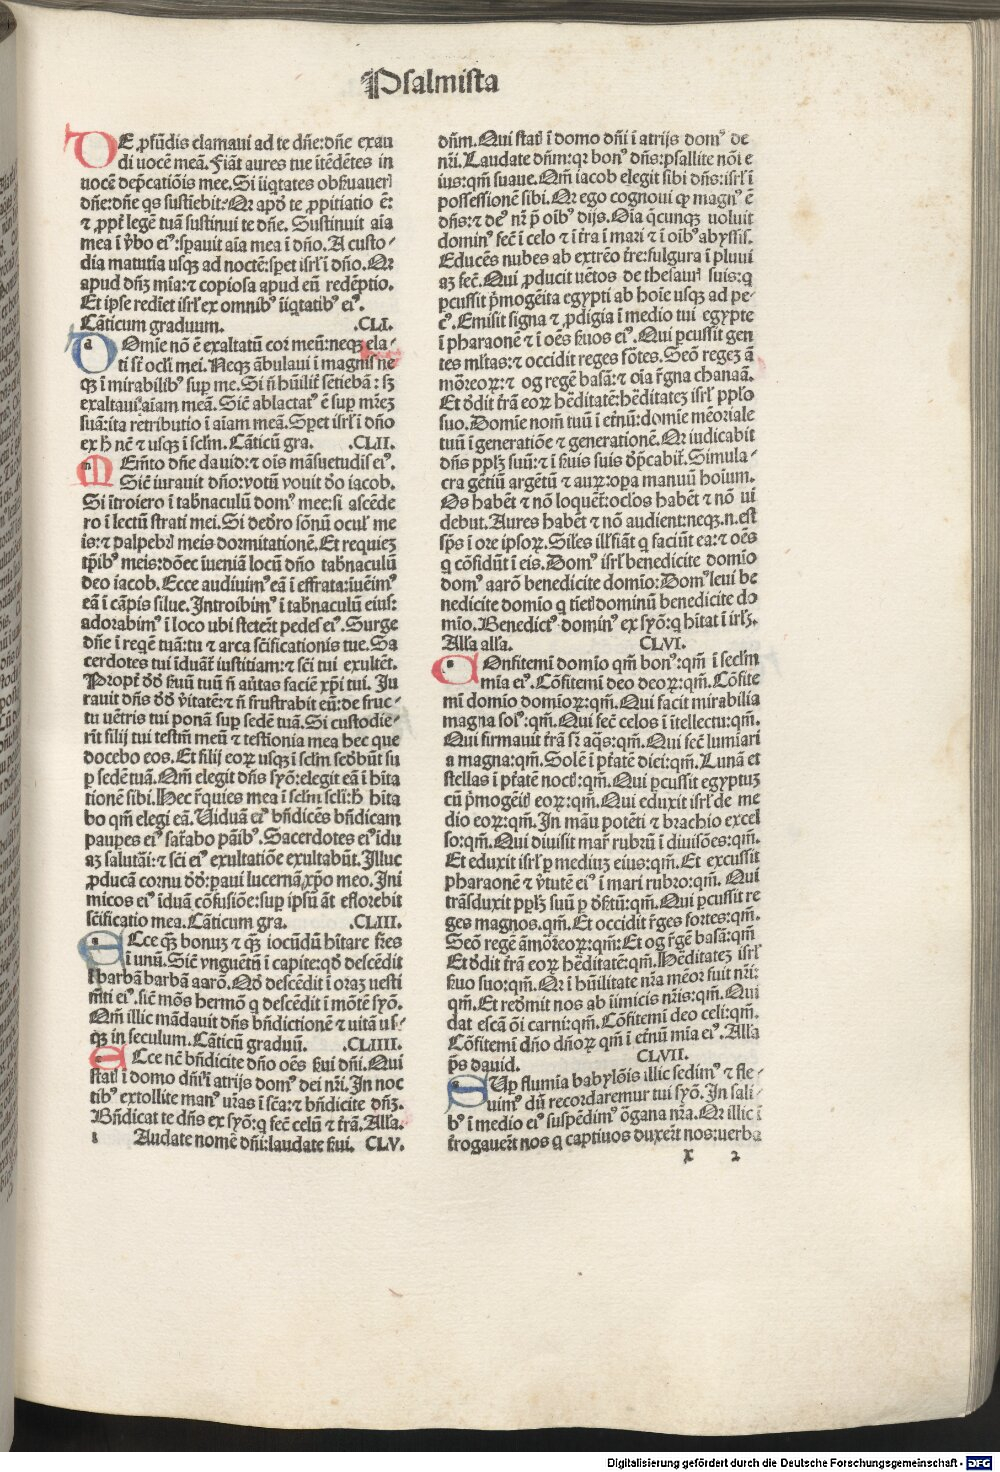 Psalmista
DE ꝓfūdis clamaui ad te dn̄e:dn̄e exau
di uocē meā. Fiāt aures tue ītēdētes in
uocē dep̄catiōis mee. Si īiqtates obẜuaueri
dn̄e:dn̄e qs sustiebit? Qr apd̄ te ꝓpitiatio ē:
⁊ ꝓpt̄ legē tuā sustinui te dn̄e. Sustinuit aīa
mea ī v̄bo ei⁹:spauit aīa mea ī dn̄o. A custo⸗
dia matutīa usqꝫ ad noctē:spet isrl̄ ī dn̄o. Qr
apud dn̄ꝫ mīa:⁊ copiosa apud eū redēptio.
Et ip̄se redīet isrl̄ ex omnib⁹ īiqtatib⁹ ei⁹.
Cāticum graduum. .CLI.
DOmie nō ē exaltatū cor meū:neqꝫ ela⸗
ti st̄ ocl̄i mei. Neqꝫ ābulaui ī magnis ne
qꝫ ī mirabilib⁹ sup me. Si n̄ hūilit̄ sētiebā: sꝫ
exaltaui aīam meā. Sic̄ ablactat⁹ ē sup mr̄eꝫ
suā:ita retributio ī aīam meā. Spet isrl̄ ī dn̄o
ex h̄ nc̄ ⁊ usqꝫ ī sclm̄. Cāticū gra. .CLII.
MEm̄to dn̄e dauid:⁊ ois māsuetudīs ei⁹.
Sic̄ iurauit dn̄o:uotū vouit dō iacob.
Si ītroiero ī tab̄naculū dom⁹ mee:si ascēde
ro ī lectū strati mei. Si dedro sōnū ocul̄ me
is:⁊ palpebr̄ meis dormitationē. Et requieꝫ
tp̄ib⁹ meis:dōec īueniā locū dn̄o tab̄naculū
deo iacob. Ecce audiuim⁹ eā ī effrata:iuēim⁹
eā ī cāpis silue. Introibim⁹ ī tab̄naculū eius:
adorabim⁹ ī loco ubi steter̄t pedes ei⁹. Surge
dn̄e ī reqē tuā:tu ⁊ arca sc̄ificationis tue. Sa
cerdotes tui īduāt̄ iustitiam:⁊ sc̄i tui exultēt.
Propt̄ dd̄ ẜuū tuū n̄ au̇tas faciē xp̄i tui. Ju
rauit dn̄s dd̄ v̄itatē:⁊ n̄ frustrabit eū:de fruc⸗
tu uētris tui ponā sup sedē tuā. Si custodie⸗
rīt filij tui testm̄ meū ⁊ testīonia mea hec que
docebo eos. Et filij eorꝝ usqꝫ ī sclm̄ sedbūt su
p sedē tuā. Qm̄ elegit dn̄s syō:elegit eā ī hita
tionē sibi. Hec r̄quies mea ī sclm̄ scl̄i:h̄ hita
bo qm̄ elegi eā. Uiduā ei⁹ bn̄dicēs bn̄dicam
paup̄es ei⁹ sat̄abo pāib⁹. Sacerdotes ei⁹ īdu
aꝫ salutāi:⁊ sc̄i ei⁹ exultatiōe exultabūt. Illuc
ꝓducā cornu dd̄:paui lucernā xp̄o meo. Ini
micos ei⁹ īduā cōfusiōe:sup ip̄sū āt eflorebit
sc̄ificatio mea. Cāticum gra. .CLIII.
ECce qꝫ bonuꝫ ⁊ qꝫ iocūdū hitare fr̄es
ī unū. Sic̄ vnguētū ī capite:qd̄ descēdit
ī barbā barbā aarō. Qd̄ descēdit ī oraꝫ uesti
mīti ei⁹.sic̄ mōs hermō q descēdit ī mōtē syō.
Qm̄ illic mādauit dn̄s bn̄dictionē ⁊ uitā us⸗
qꝫ in seculum. Cāticū graduū. .CLIIII.
ECce nc̄ bn̄dicite dn̄o oēs ẜui dn̄i. Qui
stati ī domo dn̄i:ī atrijs dom⁹ dei nr̄i. In noc
tib⁹ extollite man⁹ ur̄as ī sc̄a:⁊ bn̄dicite dn̄ꝫ.
Bn̄dicat te dn̄s ex syō:q fec̄ celū ⁊ t̄rā. All̄a.
l Audate nomē dn̄i:laudate ẜui. CLV.
dn̄m. Qui stati ī domo dn̄i ī atrijs dom⁹ de
nr̄i. Laudate dn̄m:qr bon⁹ dn̄s:psallite nōi e
ius:qm̄ suaue. Qm̄ iacob elegit sibi dn̄s:isrl̄ ī
possessionē sibi. Qr ego cognoui qꝫ magn⁹ ē
dn̄s:⁊ de⁹ nr̄ p̄ oib⁹ dijs. Oīa qcunqꝫ uoluit
domin⁹ fec̄ ī celo ⁊ ī t̄ra ī mari ⁊ ī oib⁹ abyssis.
Educēs nubes ab extreō t̄re:fulgura ī pluui
aꝫ fec̄. Qui ꝓducit uētos de thesaur̄ suis:q
ꝑcussit p̄mogēita egypti ab hoīe usqꝫ ad pe⸗
c⁹. Emisit signa ⁊ ꝓdigia ī medio tui egypte
ī pharaonē ⁊ ī oēs ẜuos ei⁹. Qui ꝑcussit gen
tes ml̄tas:⁊ occidit reges fōtes. Seō regeꝫ ā
mōr̄eoꝝ:⁊ og regē basā:⁊ oīa r̄gna chanaā.
Et dedit t̄rā eoꝝ hēditatē:hēditateꝫ isrl̄ ppl̄o
suo. Domīe nom̄ tuū ī et̄nū:domīe mēoriale
tuū ī generatiōe ⁊ generationē. Qr iudicabit
dn̄s ppl̄ꝫ suū:⁊ ī ẜuis suis dp̄cabit̄. Simula⸗
cra gētiū argētū ⁊ auꝝ:opa manuū hoīum.
Os habēt ⁊ nō loquēt:oclos habēt ⁊ nō ui
debut. Aures habēt ⁊ nō audient:neqꝫ.n.est
sp̄s ī ore ipsoꝝ. Siles ill̄ fiāt q faciūt ea:⁊ oēs
q cōfidūt ī eis. Dom⁹ isrl̄ benedicite domīo
dom⁹ aarō benedicite domīo:Dom⁹ leui be
nedicite domīo q tīeti dominū benedicite do
mīo. Benedict⁹ domin⁹ ex syō:q hitat ī irl̄ꝫ.
All̄a all̄a. CLVI.
COnfitemī domīo qm̄ bon⁹:qm̄ ī sectm̄
mīa ei⁹. Cōfitemī deo deoꝝ:qm̄. Cōfite
mī domīo domīoꝝ:qm̄. Qui facit mirabilia
magna sol⁹:qm̄. Qui fec̄ celos ī ītellectu:qm̄.
Qui firmauit t̄rā sꝛ aqs:qm̄. Qui fec̄ lumīari
a magna:qm̄. Solē ī pt̄atē diei:qm̄. Lunā et
stellas ī pt̄atē nocti:qm̄. Qui ꝑcussit egyptuꝫ
cū p̄mogēiti eoꝝ:qm̄. Qui eduxit isrl̄ de me
dio eoꝝ:qm̄. In māu potēti ⁊ brachio excel
so:qm̄. Qui diuisit mar̄ rubrū ī diuisōes:qm̄.
Et eduxit isrl̄ ꝑ mediuꝫ eius:qm̄. Et excussit
pharaonē ⁊ v̄tutē ei⁹ ī mari rubro:qm̄. Qui
trāsduxit ppl̄ꝫ suū ꝑ dẜtū:qm̄. Qui ꝑcussit re
ges magnos.qm̄. Et occidit r̄ges fortes:qm̄.
Seō regē āmōr̄eoꝝ:qm̄:Et og r̄gē basā:qm̄
Et dedit t̄rā eoꝝ hēditatē:qm̄. Hēditateꝫ isrl̄
ẜuo suo:qm̄. Qr ī hūilitate nr̄a mēor fuit nr̄i:
qm̄. Et redmit nos ab īimicis nr̄is:qm̄. Qui
dat escā ōi carni:qm̄. Cōfitemī deo celi:qm̄.
Cōfitemī dn̄o dn̄oꝝ qm̄ ī et̄nū mīa ei⁹. All̄a
p̄s dauid. CLVII.
SUꝑ flumīa babylōis illic sedim⁹ ⁊ fle⸗
uim⁹ dū recordaremur tui syō. In sali⸗
b⁹ ī medio ei⁹ suspēdim⁹ ōgana nr̄a. Qr illic ī
t̄rogauer̄t nos q captiuos duxer̄t nos:uerba
x 2
Digitalisierung gefördert durch die Deutsche Forschungsgemeinschaft - DFG